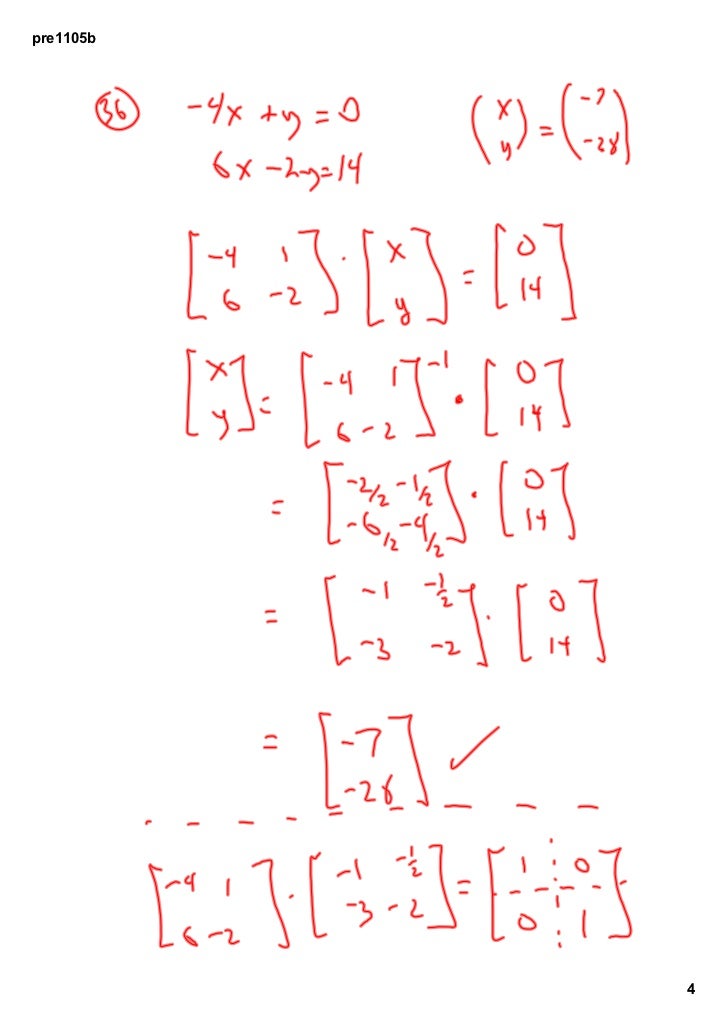 pre1105b
(36) -4x + y = 0 (x y) = (-7 -28)
6x - 2y = 14
[-4 1 6 -2] · [x y] = [0 14]
[x y] = [-4 1 6 -2]^-1 · [0 14]
= [-2/2 -1/2 -6/2 -4/2] · [0 14]
= [-1 -1/2 -3 -2] · [0 14]
= [-7 -28] ✓
[-4 1 6 -2] · [-1 -1/2 -3 -2] = [1 0 0 1]
4